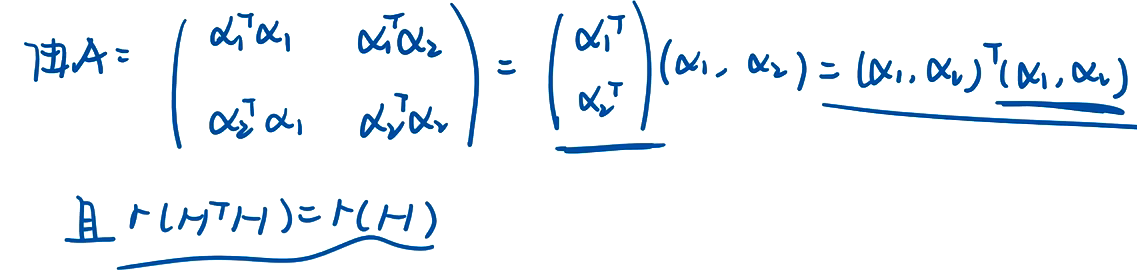 阵A = \begin{pmatrix} α₁ᵀα₁ & α₁ᵀα₂ \\ α₂ᵀα₁ & α₂ᵀα₂ \end{pmatrix} = \begin{pmatrix} α₁ᵀ \\ α₂ᵀ \end{pmatrix} (α₁, α₂) = (α₁, α₂)ᵀ(α₁, α₂)
且 r(HᵀH) = r(H)